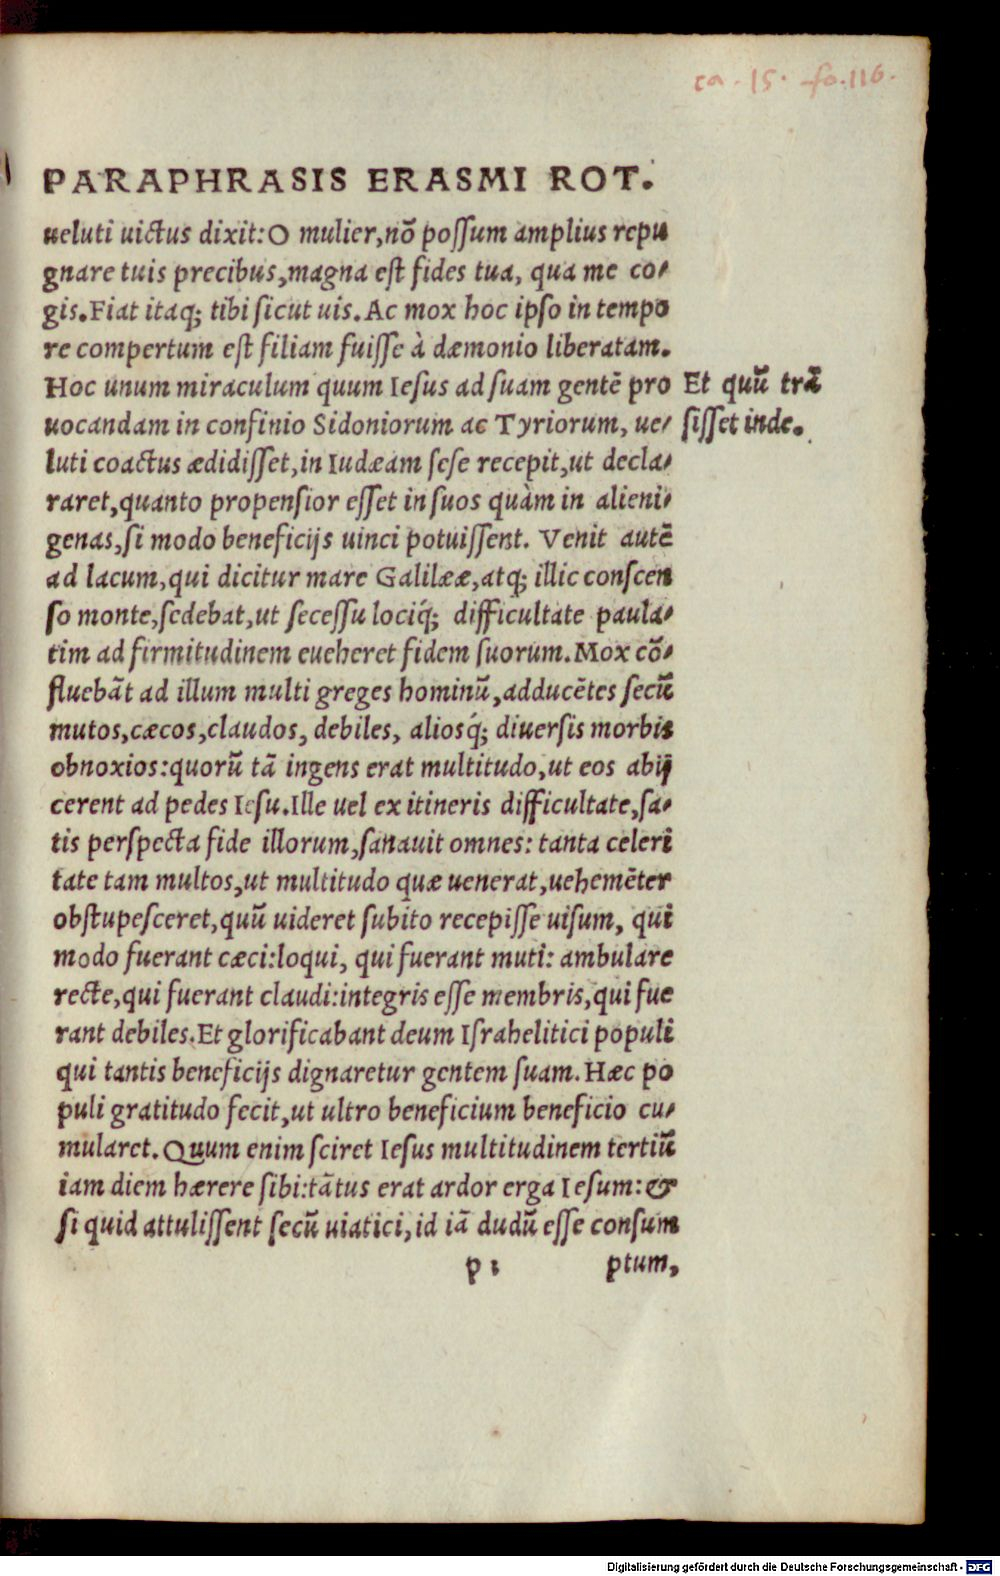 ca. 15. fo. 116.
PARAPHRASIS ERASMI ROT.
ueluti uictus dixit: O mulier, nõ possum amplius repu
gnare tuis precibus, magna est fides tua, qua me co-
gis. Fiat itaq; tibi sicut uis. Ac mox hoc ipso in tempo
re compertum est filiam fuisse à dæmonio liberatam.
Hoc unum miraculum quum Iesus ad suam gentẽ pro
uocandam in confinio Sidoniorum ac Tyriorum, ue-
luti coactus ædidisset, in Iudæam sese recepit, ut decla-
raret, quanto propensior esset in suos quàm in alieni-
genas, si modo beneficijs uinci potuissent. Venit autẽ
ad lacum, qui dicitur mare Galilææ, atq; illic conscen
so monte, sedebat, ut secessu lociq́; difficultate paula-
tim ad firmitudinem eueheret fidem suorum. Mox cõ-
fluebãt ad illum multi greges hominũ, adducẽtes secũ
mutos, cæcos, claudos, debiles, aliosq́; diuersis morbis
obnoxios: quorũ tã ingens erat multitudo, ut eos abij
cerent ad pedes Iesu. Ille uel ex itineris difficultate, sa-
tis perspecta fide illorum, sanauit omnes: tanta celeri
tate tam multos, ut multitudo quæ uenerat, uehemẽter
obstupesceret, quũ uideret subito recepisse uisum, qui
modo fuerant cæci: loqui, qui fuerant muti: ambulare
recte, qui fuerant claudi: integris esse membris, qui fue
rant debiles. Et glorificabant deum Israhelitici populi
qui tantis beneficijs dignaretur gentem suam. Hæc po
puli gratitudo fecit, ut ultro beneficium beneficio cu-
mularet. Quum enim sciret Iesus multitudinem tertiũ
iam diem hærere sibi: tãtus erat ardor erga Iesum: &
si quid attulissent secũ uiatici, id iã dudũ esse consum
p 1 ptum,
Et quũ trã
sisset inde.
Digitalisierung gefördert durch die Deutsche Forschungsgemeinschaft - DFG